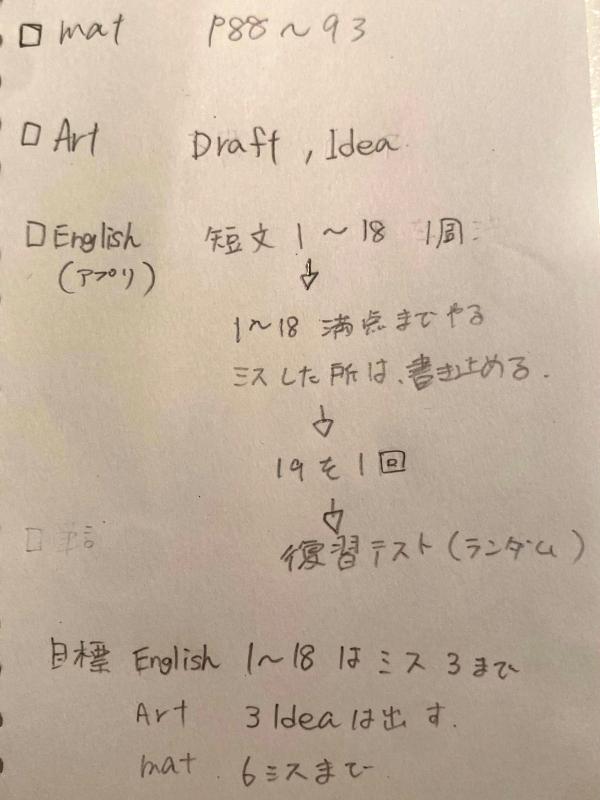 □ mat P88～93
□ Art Draft , Idea
□ English 短文 1～18 1周
(アプリ)
↓
1～18 満点までやる
ミスした所は、書き止める.
↓
19を1回
↓
□
復習テスト(ランダム)
目標 English 1～18 はミス3まで
Art 3 Ideaは出す.
mat 6ミスまで